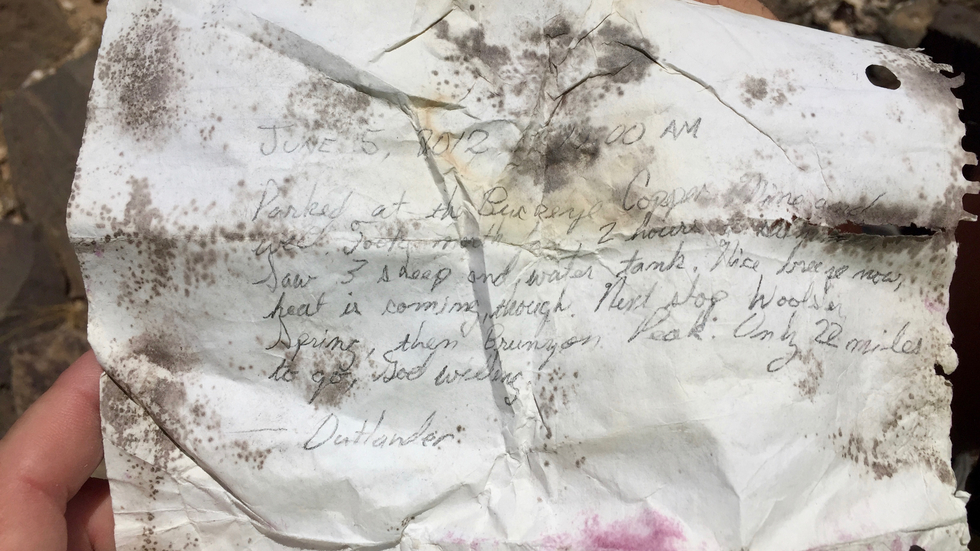 JUNE 5, 2012 00 AM
Parked at the Buckeye Copper Mine and
2 hours
Saw 3 sheep and water tank. Nice breeze now,
heat is coming, though. Next stop Woolsey
Spring, then Brunyon Peak. Only 22 miles
to go, God weeling
— Outlander